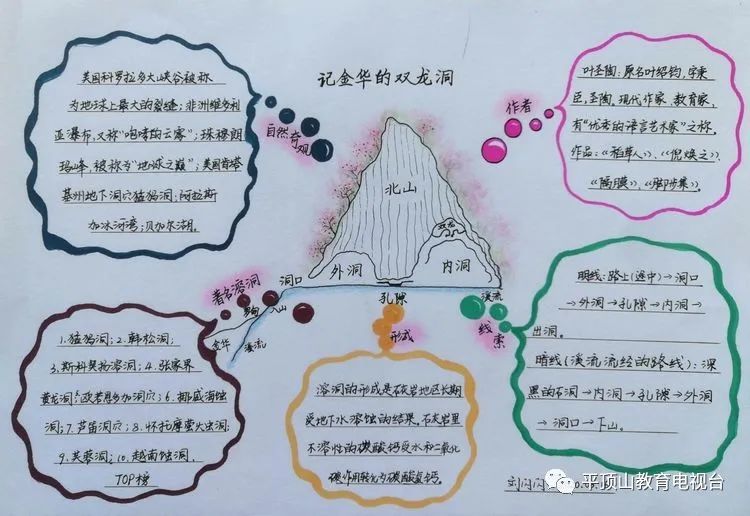 记金华的双龙洞
美国科罗拉多大峡谷被称
为地球上最大的裂缝；非洲维多利
亚瀑布，又称"咆哮的云雾"；珠穆朗
玛峰被称为"地球之巅"；美国肯塔
基州地下洞穴猛犸洞；阿拉斯
加冰河湾；贝加尔湖。
自然奇观
作者
叶圣陶：原名叶绍钧，字秉
臣，圣陶，现代作家、教育家，
有"优秀的语言艺术家"之称，
作品：《稻草人》、《倪焕之》、
《隔膜》、《脚步集》。
北山
双龙
外洞
内洞
洞口
孔隙
溪流
入山
金华
溪流
著名溶洞
1.猛犸洞；2.韩松洞；
3.斯科契扬溶洞；4.张家界
黄龙洞；5.欧若恩多加洞穴；6.挪威海蚀
洞；7.芦笛洞穴；8.怀托摩萤火虫洞；
9.芙蓉洞；10.越南蚀洞，
TOP榜
形成
溶洞的形成是石灰岩地区长期
受地下水溶蚀的结果。石灰岩里
不溶性的碳酸钙受水和二氧化
碳作用转化为碳酸氢钙。
线索
明线：路上（途中）→洞口
→外洞→孔隙→内洞→
出洞。
暗线（溪流流经的路线）：深
黑的石洞→内洞→孔隙→外洞
→洞口→下山。
平顶山教育电视台